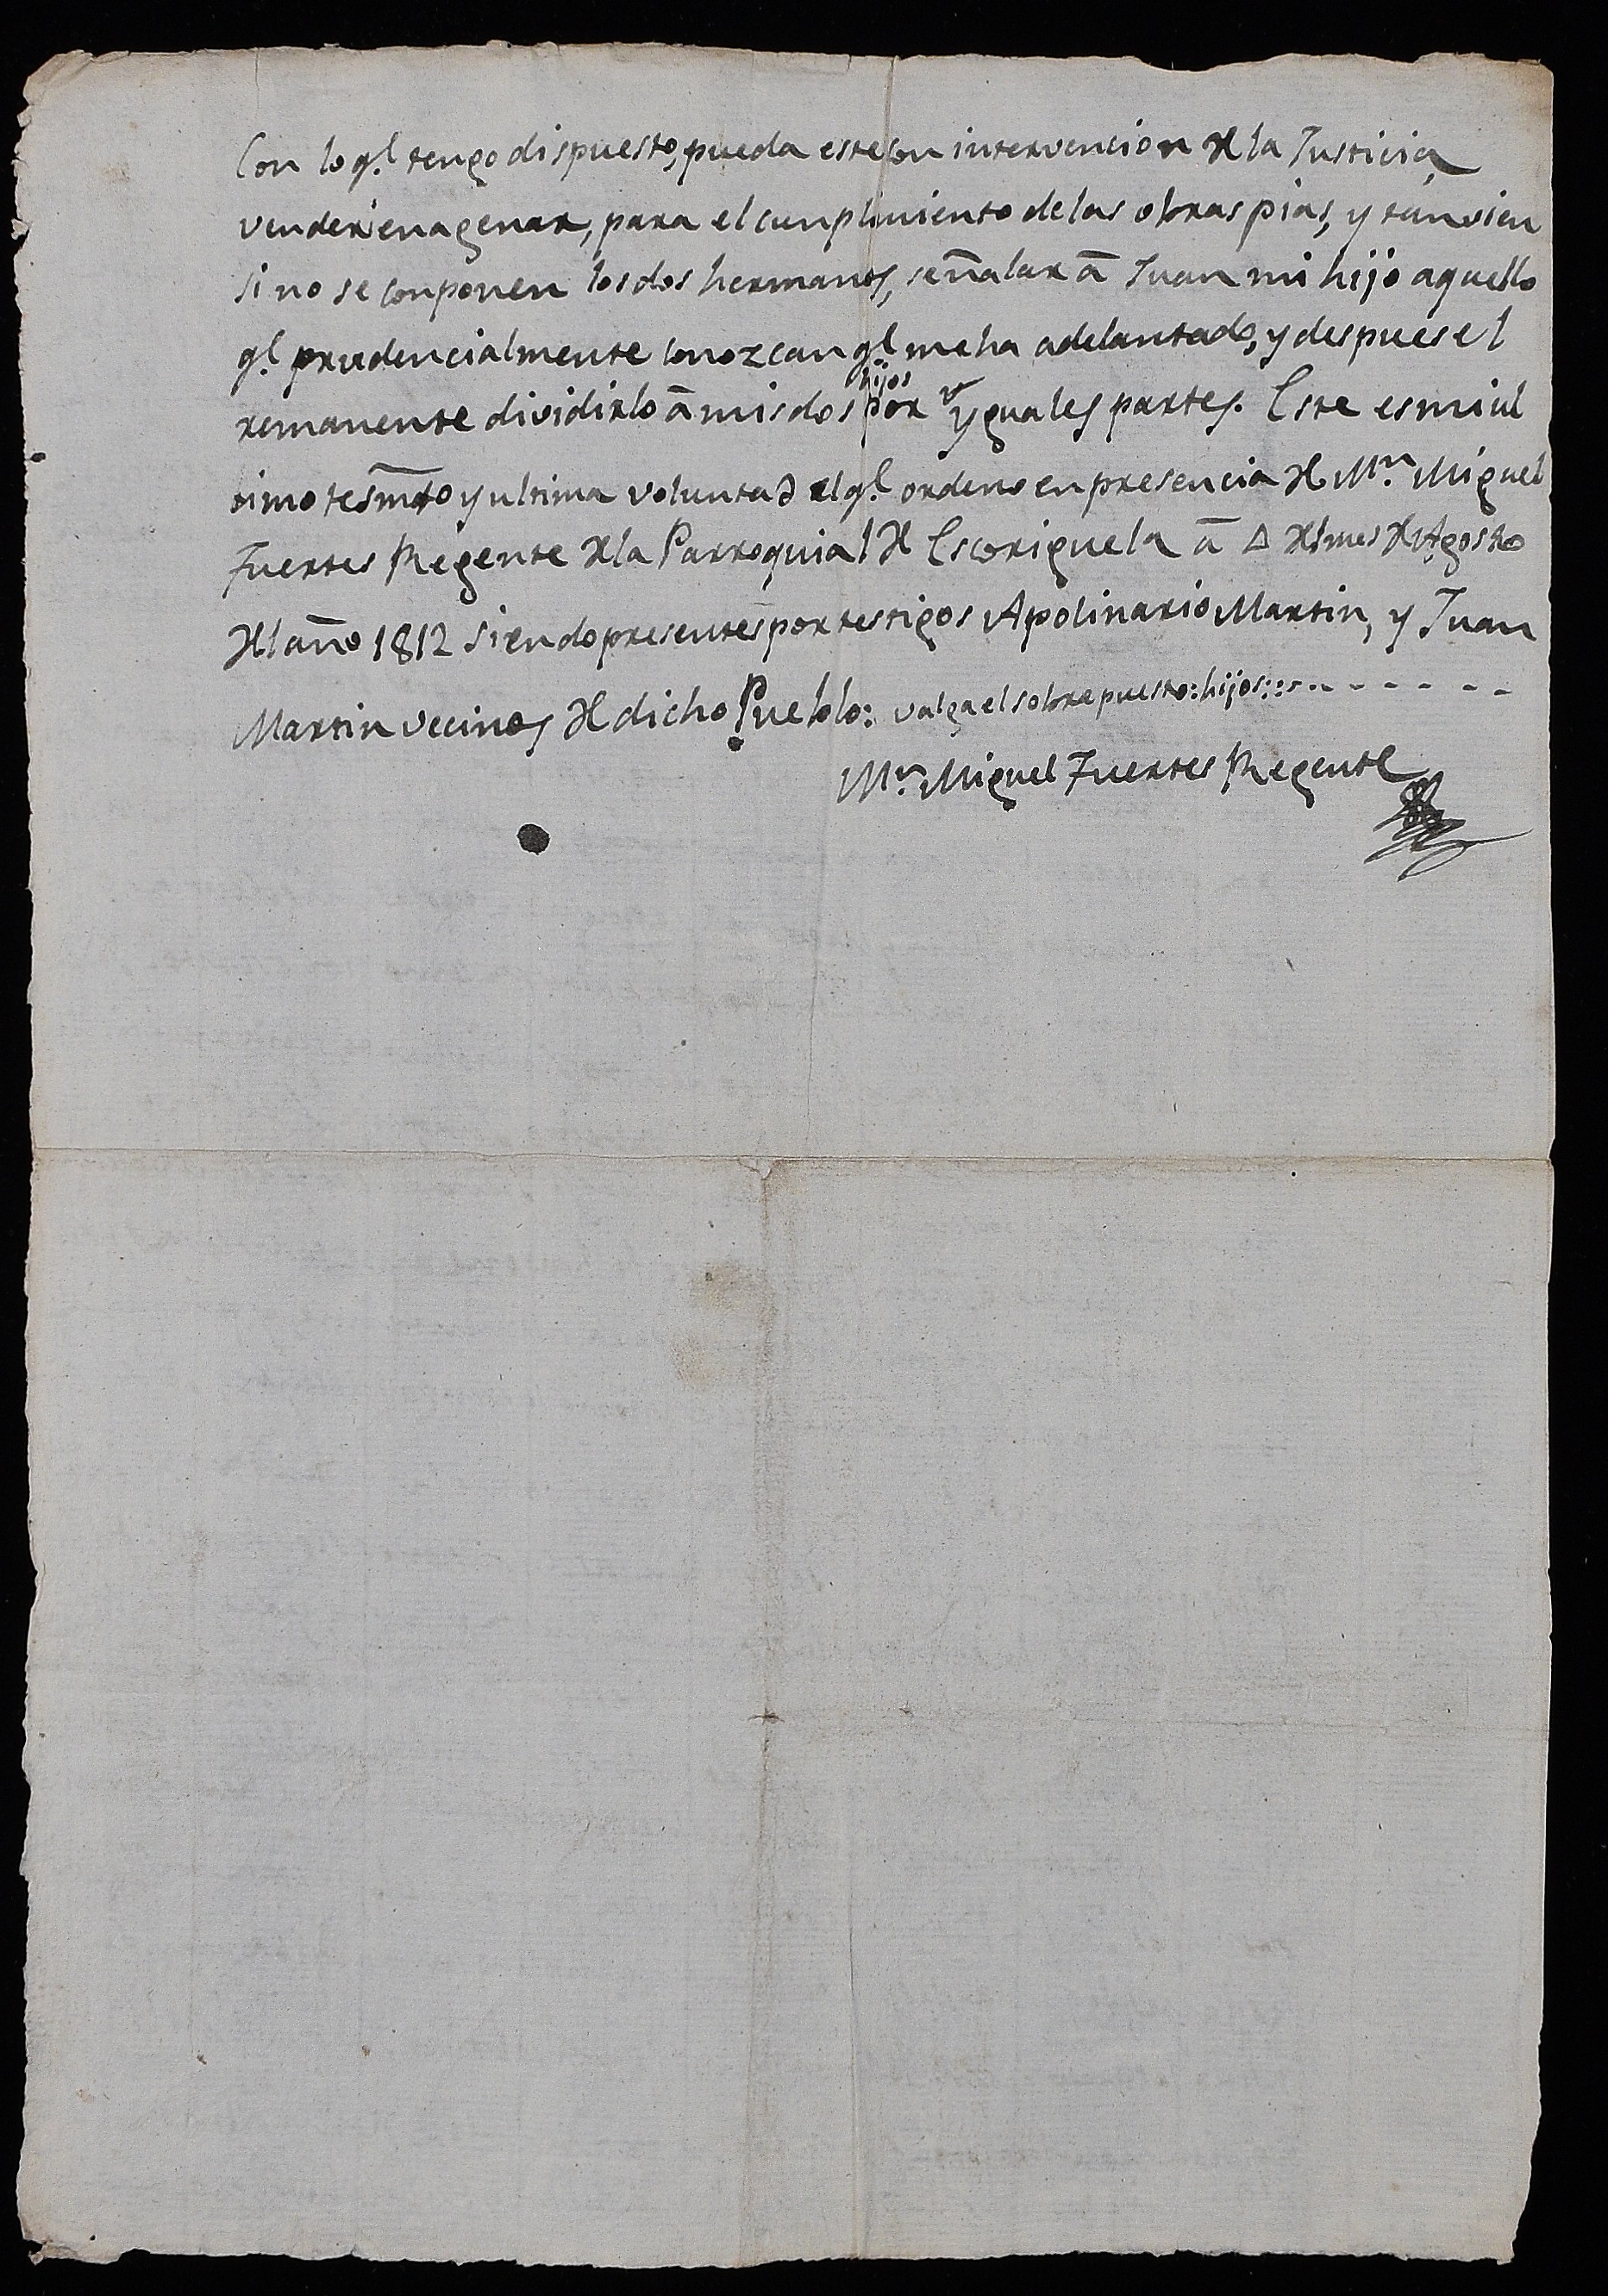 Con lo ql. tengo dispuesto, pueda este con intervencion de la Justicia,
vender enagenar, para el cunplimiento de las obras pias, y tanvien
si no se conponen los dos hermanos, señalar â Juan mi hijo aquello
ql. prudencialmente conozcan ql. me ha adelantado, y despues el
hijos
remanente dividirlo â mis dos por yguales partes. Este es mi ul
timo tesmto y ultima voluntad el ql. ordeno en presencia de Mn. Miguel
Fuertes Regente de la Parroquial de Escoriguela â del mes de Agosto
del año 1812 siendo presentes por testigos Apolinario Martin, y Juan
Martin vecinos de dicho Pueblo: valga el sobrepuesto: hijos::--------
Mn. Miguel Fuertes Regente